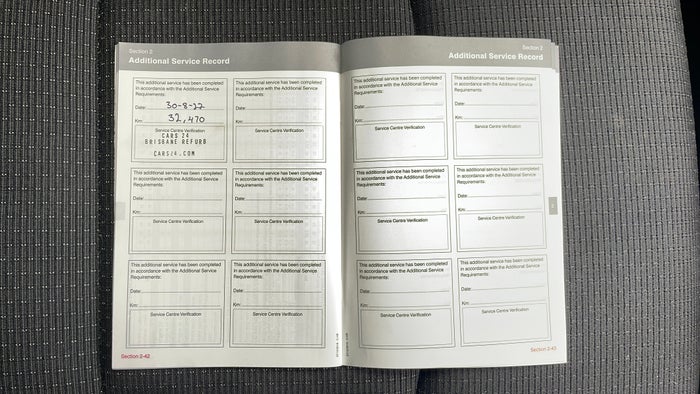 Section 2
Additional Service Record
This additional service has been completed
in accordance with the Additional Service
Requirements:
Date: 30-8-22
Km: 32,470
Service Centre Verification
CARS 24
BRISBANE REFURB
CARS24.COM
This additional service has been completed
in accordance with the Additional Service
Requirements:
Date:
Km:
Service Centre Verification
This additional service has been completed
in accordance with the Additional Service
Requirements:
Date:
Km:
Service Centre Verification
This additional service has been completed
in accordance with the Additional Service
Requirements:
Date:
Km:
Service Centre Verification
This additional service has been completed
in accordance with the Additional Service
Requirements:
Date:
Km:
Service Centre Verification
This additional service has been completed
in accordance with the Additional Service
Requirements:
Date:
Km:
Service Centre Verification
Section 2-42
Section 2
Additional Service Record
This additional service has been completed
in accordance with the Additional Service
Requirements:
Date:
Km:
Service Centre Verification
This additional service has been completed
in accordance with the Additional Service
Requirements:
Date:
Km:
Service Centre Verification
This additional service has been completed
in accordance with the Additional Service
Requirements:
Date:
Km:
Service Centre Verification
This additional service has been completed
in accordance with the Additional Service
Requirements:
Date:
Km:
Service Centre Verification
This additional service has been completed
in accordance with the Additional Service
Requirements:
Date:
Km:
Service Centre Verification
This additional service has been completed
in accordance with the Additional Service
Requirements:
Date:
Km:
Service Centre Verification
Section 2-43